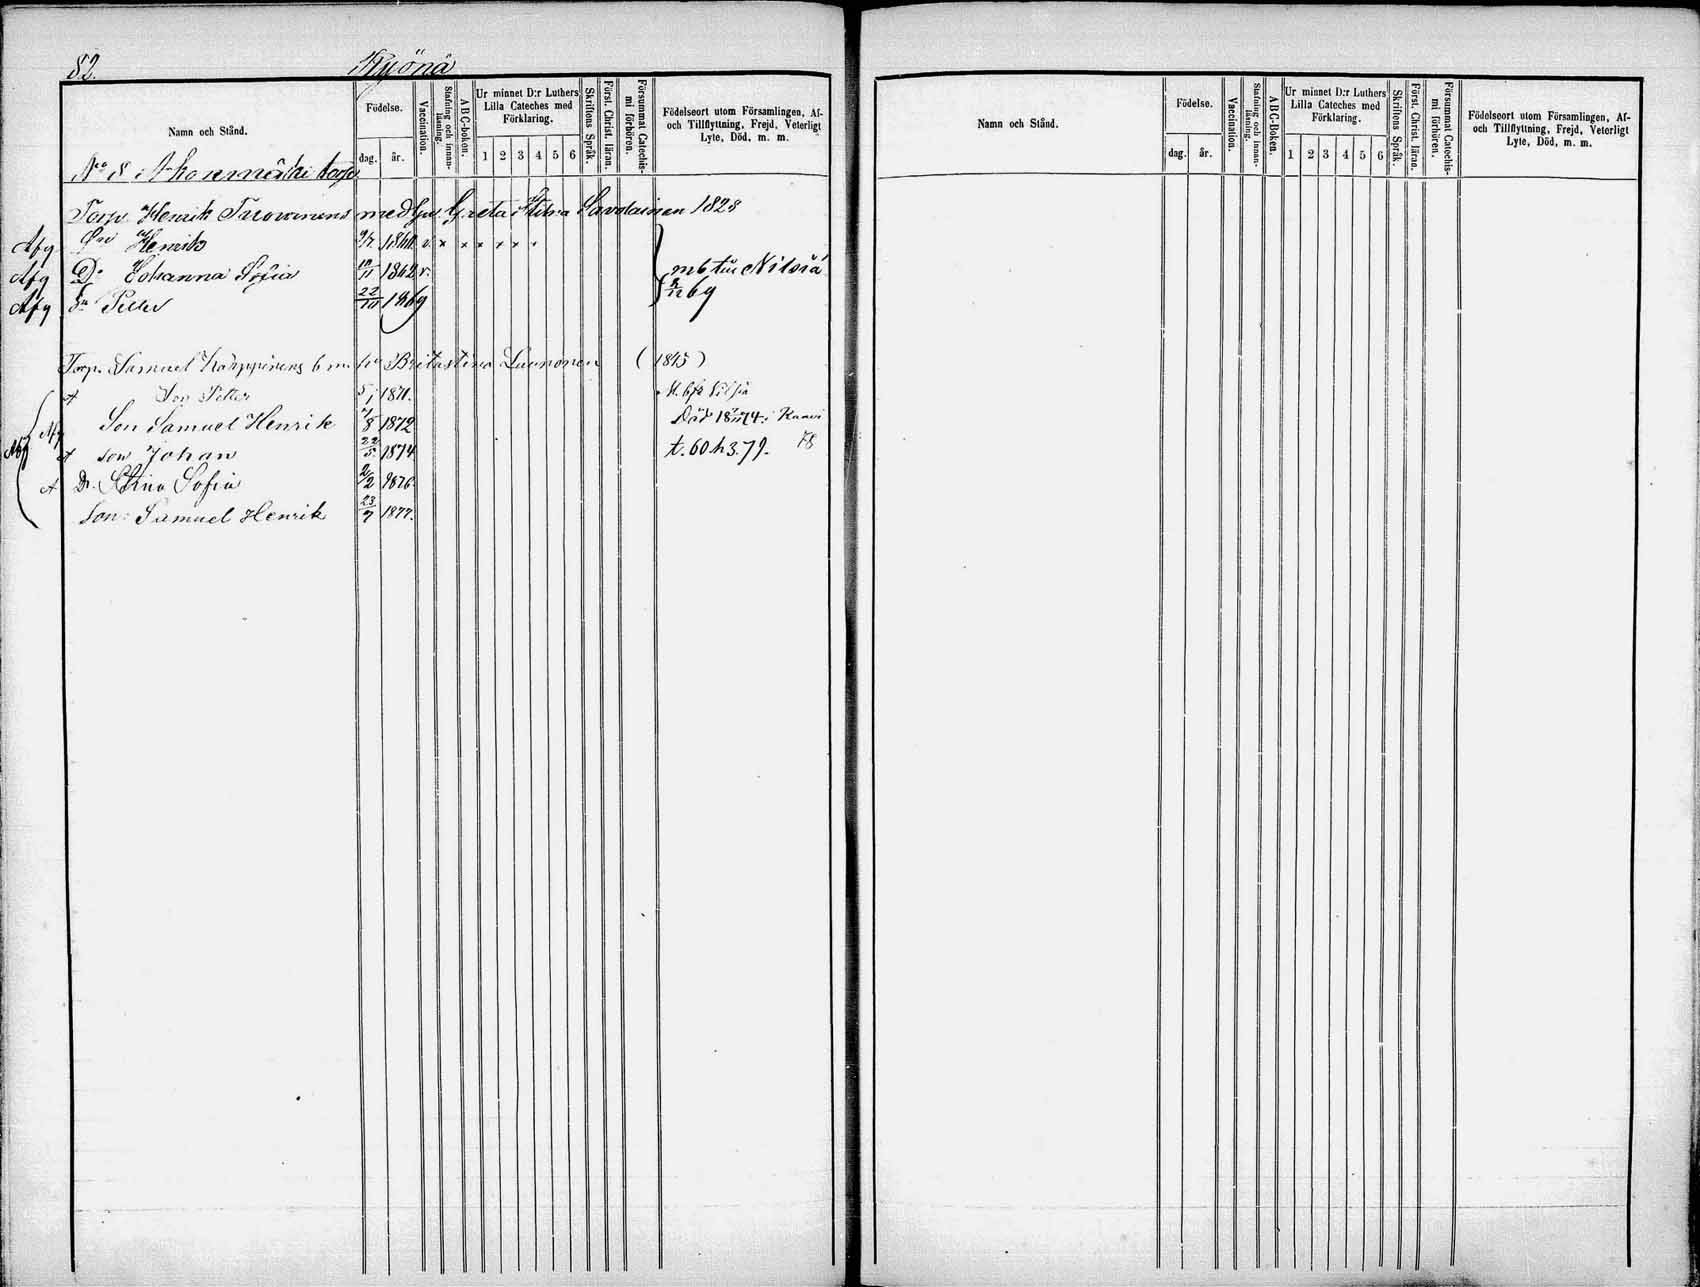 82. Kyönä
Namn och Stånd.
Födelse.
dag. år.
Vaccination.
Stafning och innanläsning.
ABC-boken.
Ur minnet D:r Luthers Lilla Cateches med Förklaring.
1 2 3 4 5 6
Skriftens Språk.
Först. Christ. läran.
Försummat Catechismi förhören.
Födelseort utom Församlingen, Af- och Tillflyttning, Frejd, Veterligt Lyte, Död, m. m.
No 8 Ahonmäki torp
Torp. Henrik Turowinens med hu Greta Stina Savolainen 1828
Afg Son Henrik 9/7 1860 v. x x x x x x
Afg Dr Johanna Sofia 10/11 1862 v. mb från Nilsiä
Afg Sn Petter 22/10 1869 69
Torp. Samuel Karppinens b m hu Brita Stina Luononen (1845)
A Son Petter 5/1 1871. Nilsiä
Afg Son Samuel Henrik 1/8 1872 Död 18 74 i Kaavi
A son Johan 22/5 1874 t. 60 h 3. 79. 78
A Dr. Stina Sofia 2/2 1876.
Son: Samuel Henrik 23/7 1877.
Namn och Stånd.
Födelse.
dag. år.
Vaccination.
Stafning och innanläsning.
ABC-Boken.
Ur minnet D:r Luthers Lilla Cateches med Förklaring.
1 2 3 4 5 6
Skriftens Språk.
Först. Christ. läran.
Försummat Catechismi förhören.
Födelseort utom Församlingen, Af- och Tillflyttning, Frejd, Veterligt Lyte, Död, m. m.